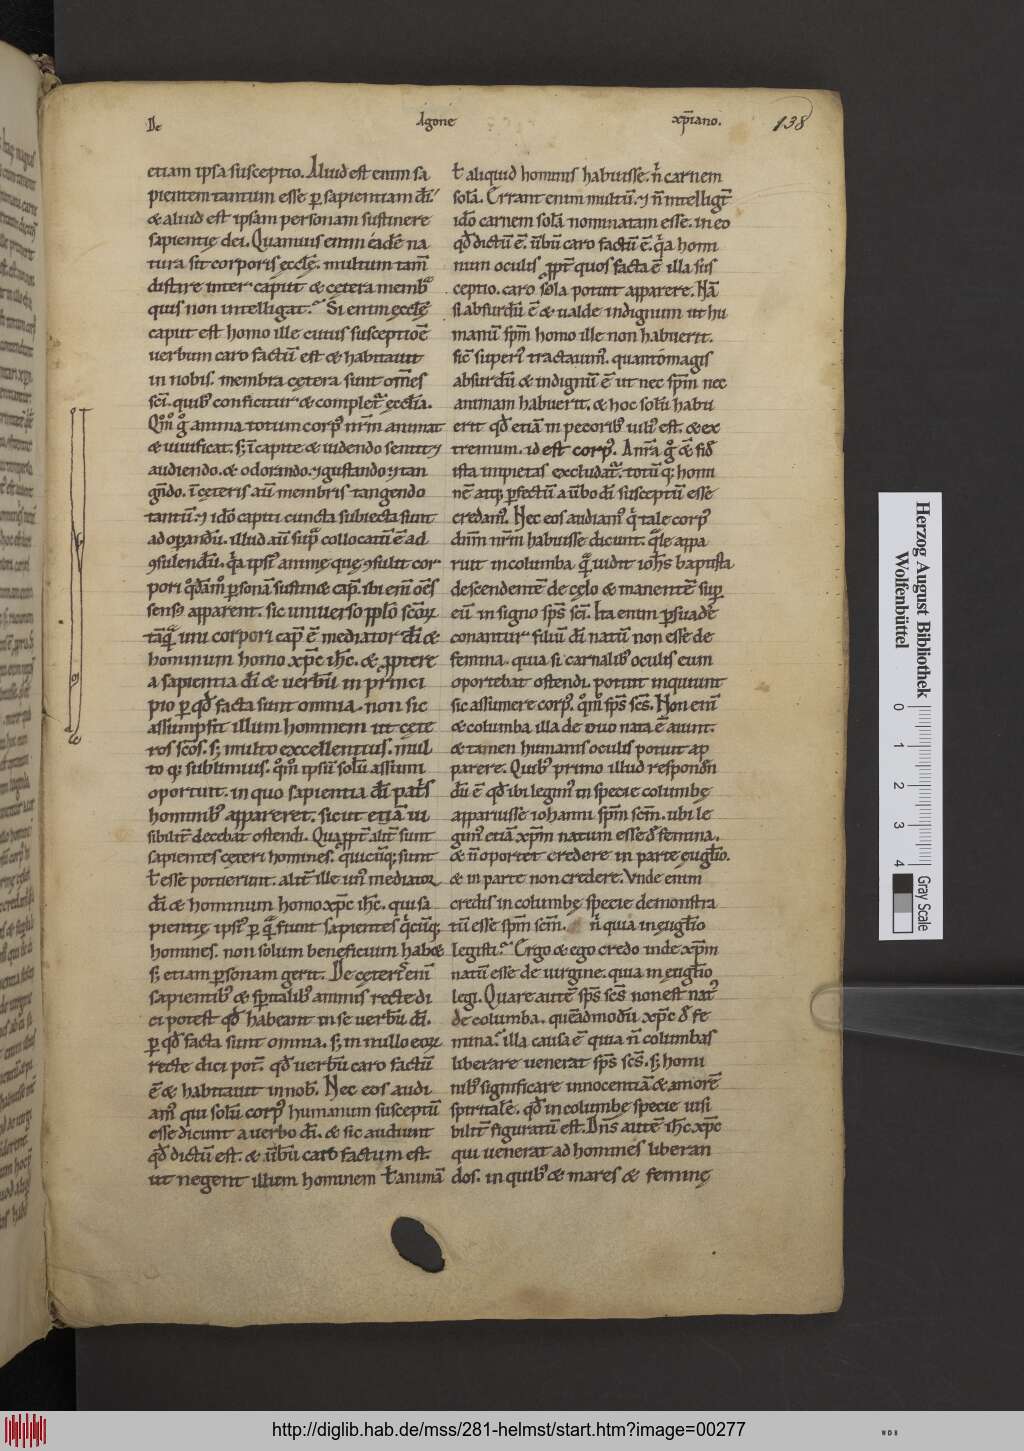 De Agone xp̄iano. 138
etiam ipsa susceptio. Aliud est enim sa
pientem tantum esse ꝑ sapientiam dī.
& aliud est ipsam personam sustinere
sapientię dei. Quamuis enim eadē na
tura sit corporis ęcclę̄. multum tam̄
distare inter caput & cętera membra
quis non intelligat? Si enim ęcclę̄
caput est homo ille cuius susceptiōe
uerbum caro factū est & habitauit
in nobis. membra cętera sunt om̄es
sc̄i. quibꝰ conficitur & completᷣ ęcclīa.
Qm̊o g̊ anima totum corpꝰ nr̄m animat
& uiuificat. sꝫ ī capite & uidendo sentit ⁊
audiendo. & odorando. ⁊ gustando ⁊ tan
gn̄do. ī cęteris aū membris tangendo
tantū. ⁊ idō capiti cuncta subiecta sunt
ad oꝑandū. illud aū supᷓ collocatū ē ad
ꝯsulendū. qͥa ipsīꝰ animę quę ꝯsulit cor
pori qͦdāmͦ ꝑsonā sustin& cap̄. ibi enī oēs
sensꝰ apparent. sic uniuerso pplō sc̄oꝝ
tāqᷓ uni corpori cap̄ ē mediator dī &
hominum homo xp̄c ih̄c. & ꝓpterę
a sapientia dī & uerbū in princi
pio ꝑ qd̄ facta sunt omnia. non sic
assumpsit illum hominem ut cęte
ros sc̄os. sꝫ multo excellentius. mul
to qꝫ sublimius. qm̊o ipsū solū assumi
oportuit. in quo sapientia dī patͥs
hominibꝰ appareret. sicut etiā ui
sibilit̄ decebat ostendi. Quapp̄t alit̄ sunt
sapientes cęteri homines. qͥcūqꝫ sunt
ł esse potuerunt. alit̄ ille unꝰ mediator
dī & hominum homo xp̄c ih̄c. qui sa
pientię ipsīꝰ ꝑ qᷓ fiunt sapientes qͥcūqꝫ
homines. non solum beneficium hab&
sꝫ etiam ꝑsonam gerit. De cęterīs enī
sapientibꝰ & sp̄italibꝰ animis recte di
ci potest qd̄ habeant in se uerbū dī.
ꝑ qd̄ facta sunt omnia. sꝫ in nullo eoꝝ
recte dici pot̄. qd̄ uerbū caro factū
ē & habitauit in nob̄. Nec eos audi
amꝰ qui solū corpꝰ humanum susceptū
esse dicunt a uerbo dī. & sic audiunt
qd̄ dictū est. & ūbū caro factum est.
ut negent illum hominem ł animā
ł aliquid hominis habuisse. n̄ carnem
solā. Errant enim multū. ⁊ n̄ intelligt̄
idō carnem solā nominatam esse. in eo
qd̄ dictū ē. ūbū caro factū ē. qͥa homi
num oculis ꝓpt̄ quos facta ē illa sus
ceptio. caro sola potuit apparere. Nā
si absurdū ē & ualde indignum ut hu
manū sp̄m homo ille non habuerit.
sic̄ superiꝰ tractauimꝰ. quanto magis
absurdū & indignū ē ut nec sp̄m nec
animam habuerit. & hoc solū habu
erit qd̄ etiā in pecoribꝰ uilibꝰ est. & ex
tremum. id est corpꝰ. A nr̄a g̊ & fid̄
ista impietas excludatᷣ. totū qꝫ homi
nē atqꝫ ꝑfectū a ūbo dī susceptū esse
credamꝰ. Nec eos audiamꝰ qͥ tale corpꝰ
dn̄m nr̄m habuisse dicunt. qᷓle appa
ruit in columba qᷓ uidit ioh̄s baptista
descendentē de cęlo & manentē sup̄
eū in signo sp̄s sc̄i. Ita enim ꝑsuadē
conantur filiū dī natū non esse de
femina. quia si carnalibꝰ oculis eum
oportebat ostendi. potuit inquiunt
sic assumere corpꝰ. qm̊o sp̄s sc̄s. Non enī
& columba illa de ouo nata ē aiunt.
& tamen humanis oculis potuit ap
parere. Quibꝰ primo illud respondn̄
dū ē qd̄ ibi legimꝰ in specie columbę
apparuisse iohanni sp̄m sc̄m. ubi le
gimꝰ etiā xp̄m natum esse de femina.
& n̄ oportet credere in parte euglīo.
& in parte non credere. Vnde enim
credis in columbę specie demonstra
tū esse sp̄m sc̄m. n̄ quia in euglīo
legisti? Ergo & ego credo inde xp̄m
natū esse de uirgine. quia in euglīo
legi. Quare autē sp̄s sc̄s non est natꝰ
de columba. quēadmodū xp̄c de fe
mina? illa causa ē quia n̄ columbas
liberare uenerat sp̄s sc̄s. sꝫ homi
nibꝰ significare innocentiā & amorē
spiritalē. qd̄ in columbę specie uisi
bilit̄ figuratū est. Dn̄s autē ih̄c xp̄c
qui uenerat ad homines liberan
dos. in quibꝰ & mares & feminę
Herzog August Bibliothek
Wolfenbüttel
0 1 2 3 4
Gray Scale
http://diglib.hab.de/mss/281-helmst/start.htm?image=00277